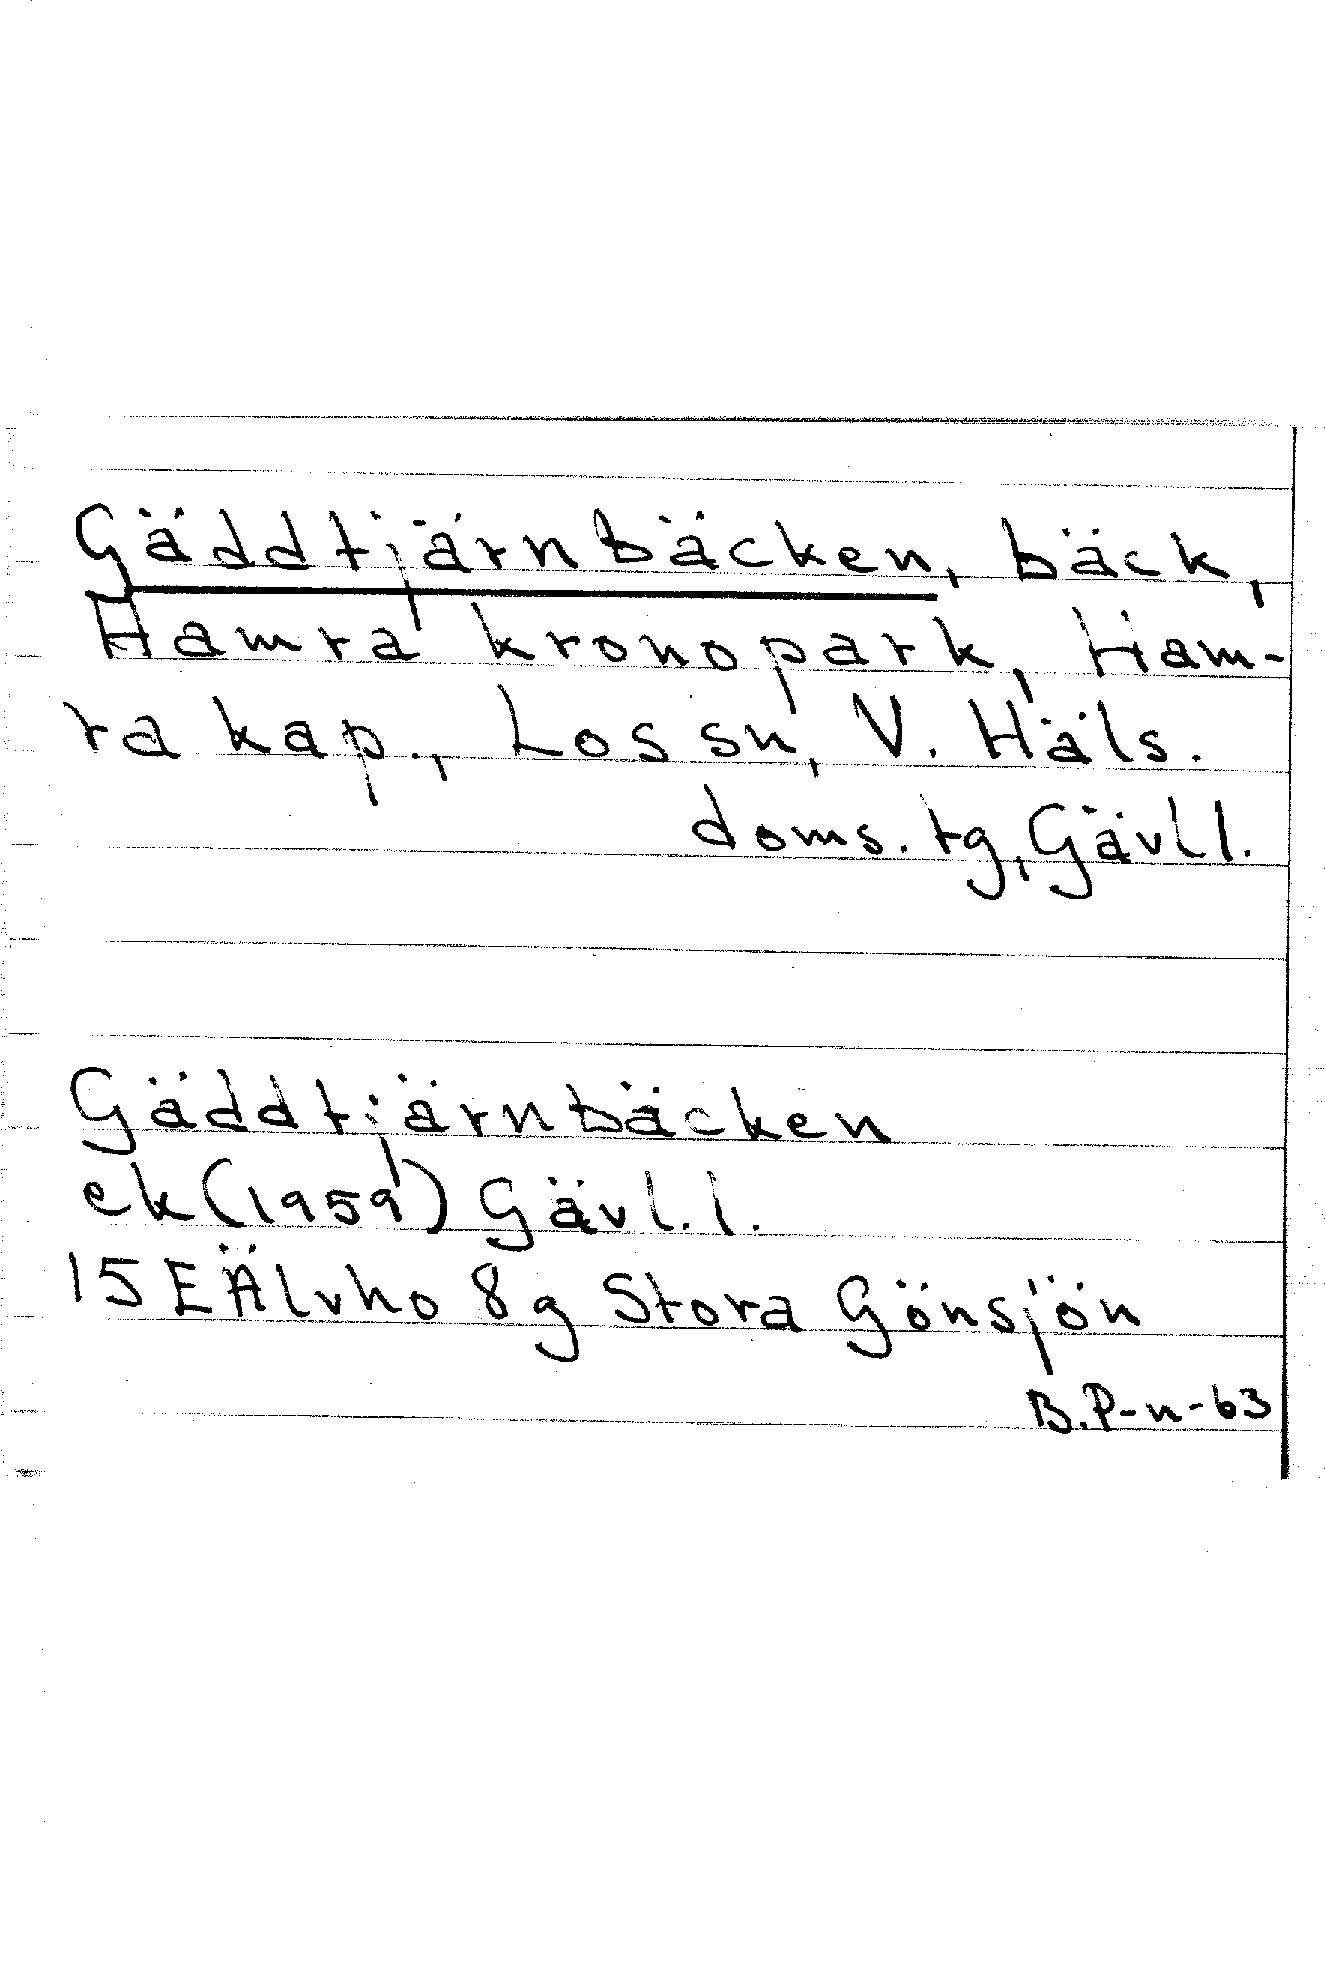 Gäddtjärnbäcken, bäck,
Hamra kronopark, Ham-
ra kap., Los sn, V. Häls.
doms. tg, Gävl l.
Gäddtjärnbäcken
ek (1959) Gävl. l.
15 E Älvho 8g Stora Gönsjön
B.P-n-63